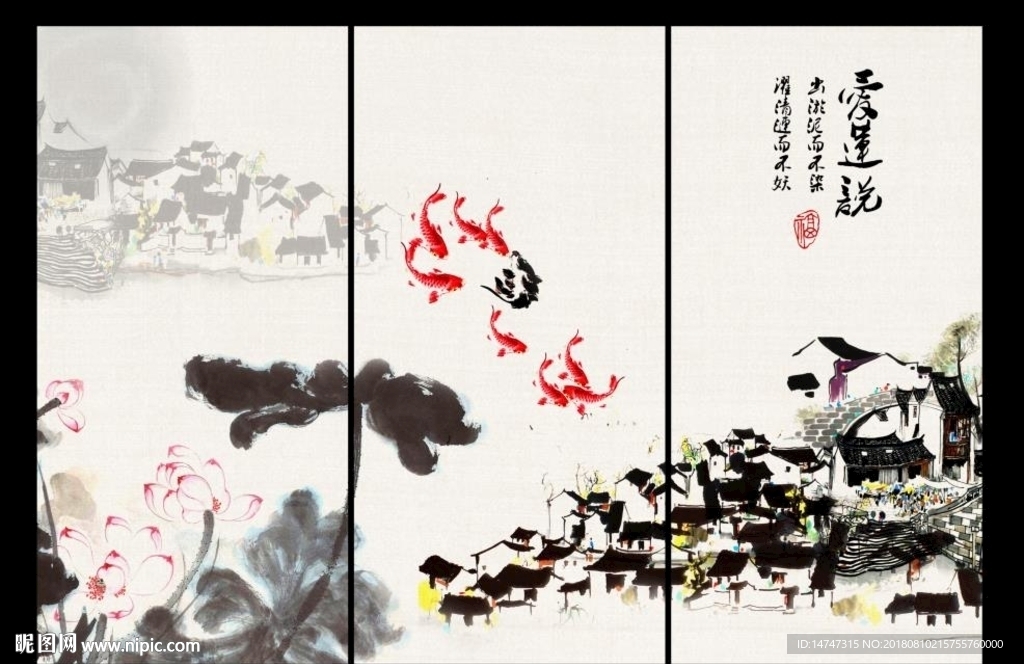 愛蓮說
出淤泥而不染
濯清漣而不妖
福
昵图网 www.nipic.com
ID:14747315 NO:20180810215755760000